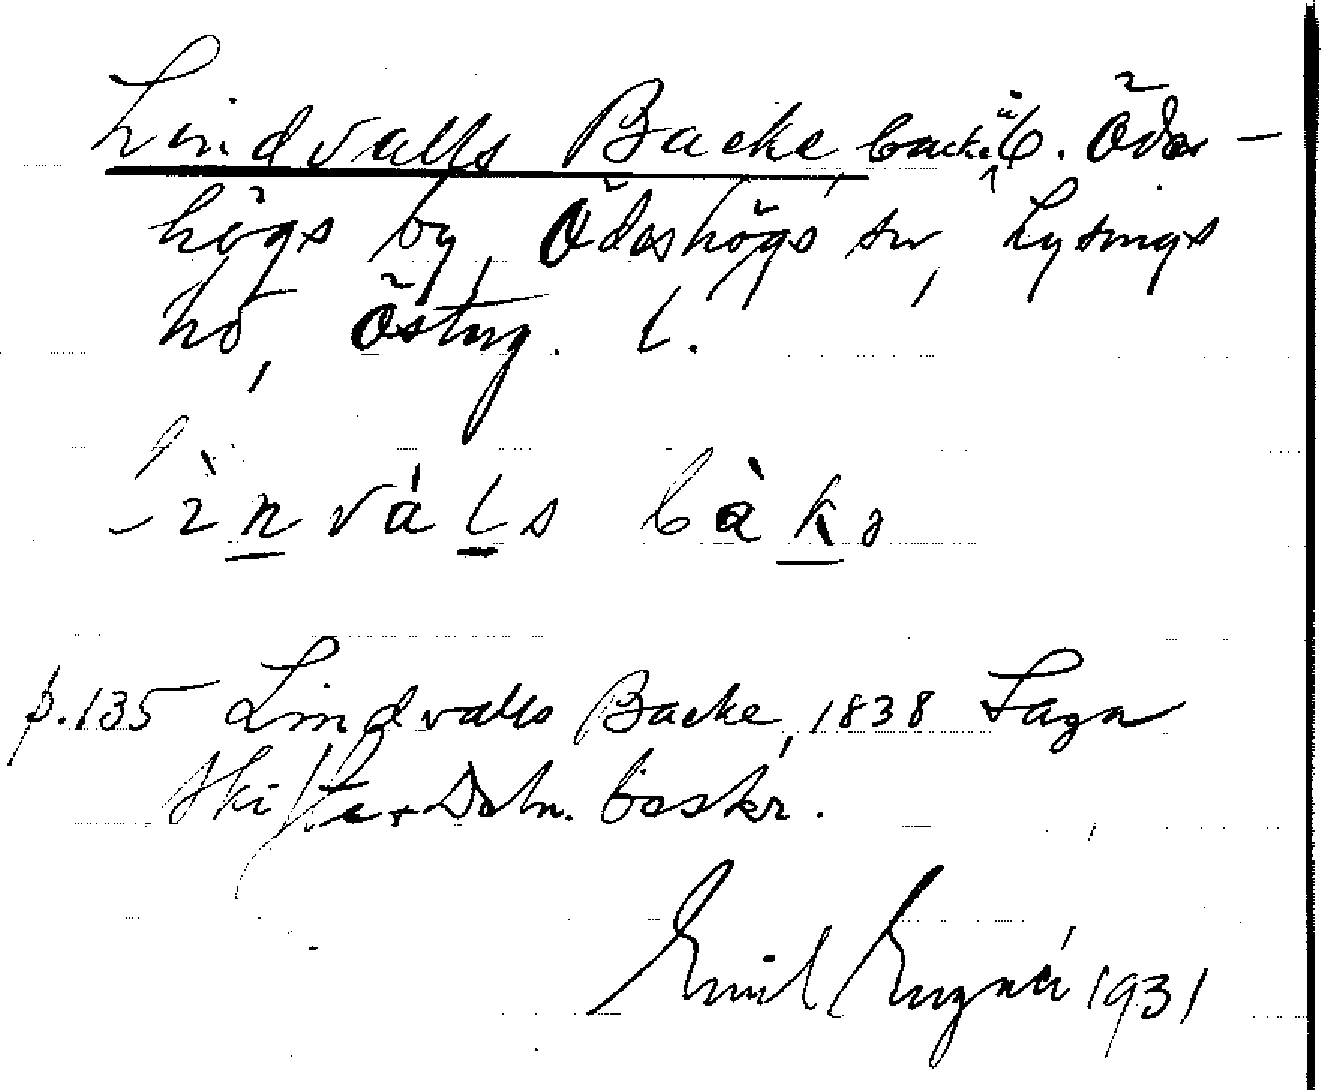 Lindvalls Backe, backe, Ödes-
högs by, Ödeshögs sn, Lysings
hd, Östrg. l.
lìnváls bàkə
p. 135 Lindvalls Backe, 1838 Laga
Skifte, Deln. beskr.
Emil 1931